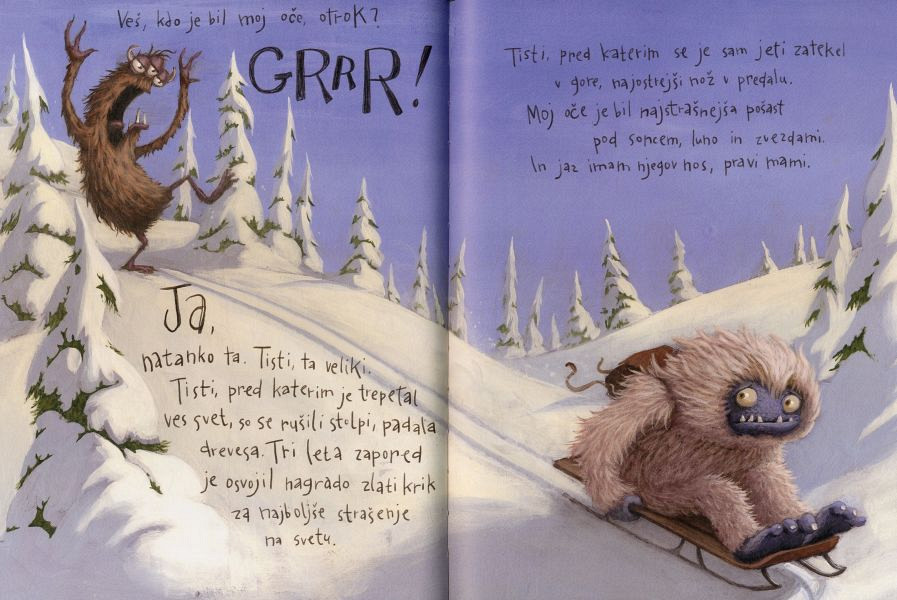 Veš, kdo je bil moj oče, otrok?
GRRR!
Ja,
natanko ta. Tisti, ta veliki.
Tisti, pred katerim je trepetal
ves svet, so se rušili stolpi, padala
drevesa. Tri leta zapored
je osvojil nagrado zlati krik
za najboljše strašenje
na svetu.
Tisti, pred katerim se je sam jeti zatekel
v gore, najostrejši nož v predalu.
Moj oče je bil najstrašnejša pošast
pod soncem, luno in zvezdami.
In jaz imam njegov nos, pravi mami.